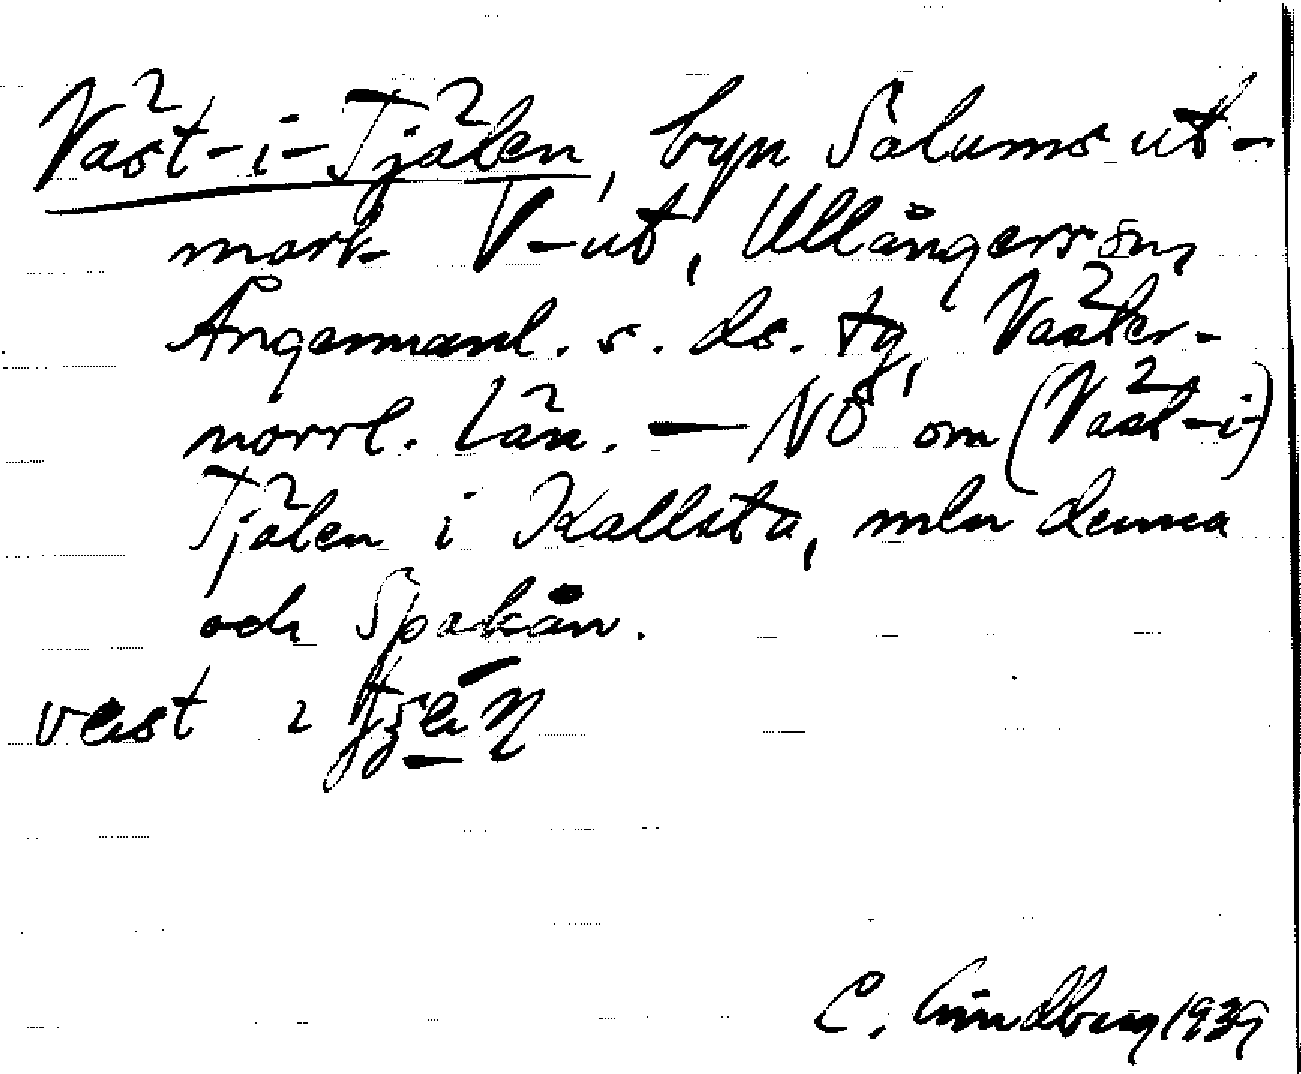 Väst-i-Tjälen, byn Salums ut-
mark V-ut, Ullångers sn,
Ångermanl. s. ds. tg, Väster-
norrl. län. — NÖ om (Väst-i-)
Tjälen i Kallsta, mln denna
och Spakån.
vest i
C. Lindberg 1939